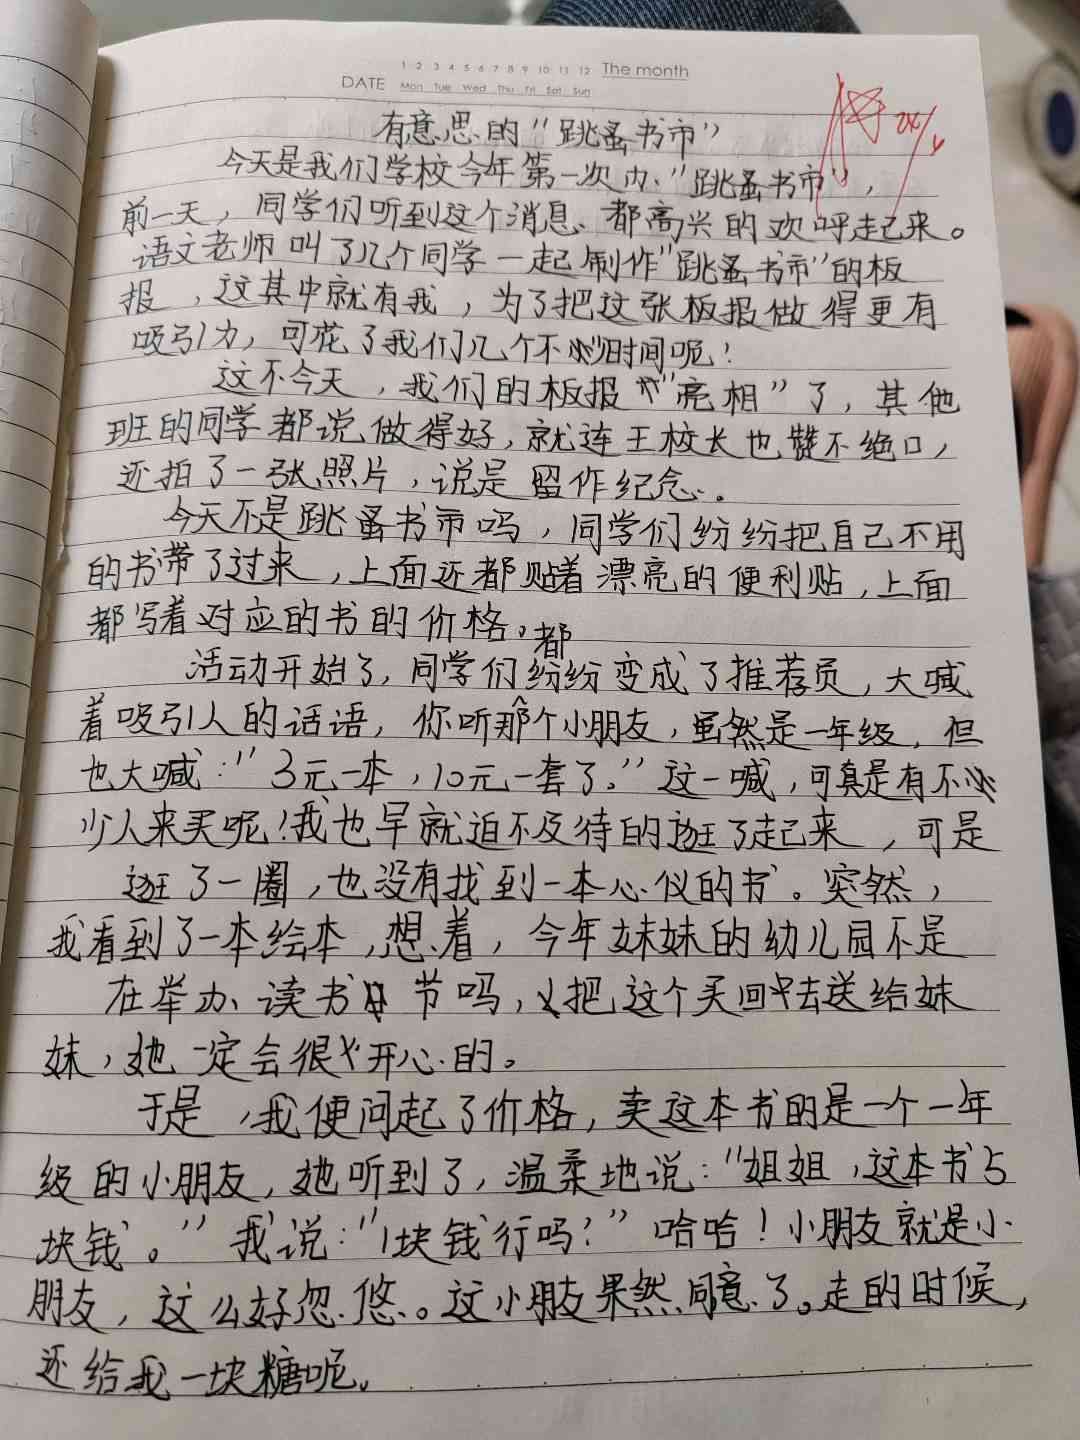 1 2 3 4 5 6 7 8 9 10 11 12 The month
DATE Mon Tue Wed Thu Fri Sat Sun
有意思的“跳蚤书市”
今天是我们学校今年第一次办“跳蚤书市”，
前一天，同学们听到这个消息、都高兴的欢呼起来。
语文老师叫了几个同学一起制作“跳蚤书市”的板
报，这其中就有我，为了把这张板报做得更有
吸引力，可花了我们几个不少时间呢！
这不今天，我们的板报“亮相”了，其他
班的同学都说做得好，就连王校长也赞不绝口，
还拍了一张照片，说是留作纪念。
今天不是跳蚤书市吗，同学们纷纷把自己不用
的书带了过来，上面还都贴着漂亮的便利贴，上面
都写着对应的书的价格。
活动开始了，同学们都纷纷变成了推荐员，大喊
着吸引人的话语，你听那个小朋友，虽然是一年级，但
也大喊：“3元一本，10元一套了。”这一喊，可真是有不
少人来买呢！我也早就迫不及待的逛了起来，可是
逛了一圈，也没有找到一本心仪的书。突然，
我看到了一本绘本，想着，今年妹妹的幼儿园不是
在举办读书节吗，把这个买回去送给妹
妹，她一定会很开心的。
于是，我便问起了价格，卖这本书的是一个一年
级的小朋友，她听到了，温柔地说：“姐姐，这本书5
块钱。”我说：“1块钱行吗？”哈哈！小朋友就是小
朋友，这么好忽悠。这小朋友果然同意了。走的时候，
还给我一块糖呢。